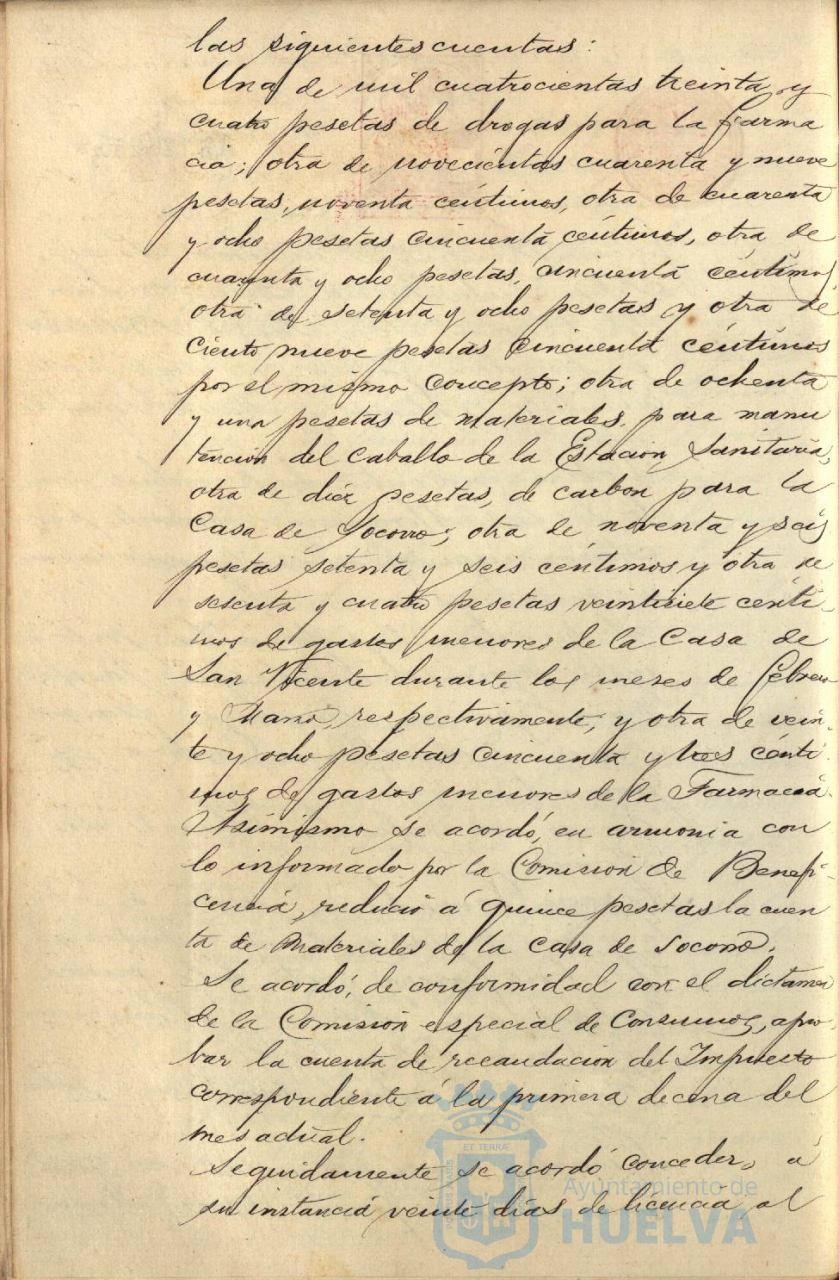 las siguientes cuentas:
Una de mil cuatrocientas treinta y
cuatro pesetas de drogas para la farma
cia; otra de novecientas cuarenta y nueve
pesetas, noventa céntimos, otra de cuarenta
y ocho pesetas cincuenta céntimos, otra de
cuarenta y ocho pesetas, cincuenta céntimos
otra de setenta y ocho pesetas y otra de
ciento nueve pesetas cincuenta céntimos
por el mismo concepto; otra de ochenta
y una pesetas de materiales para manu
tención del caballo de la Estación Sanitaria,
otra de diez pesetas, de carbon para la
Casa de Socorro; otra de noventa y seis
pesetas setenta y seis céntimos y otra de
sesenta y cuatro pesetas veintisiete cénti-
mos de gastos menores de la Casa de
San Vicente durante los meses de Febrero
y Marzo, respectivamente, y otra de vein-
te y ocho pesetas cincuenta y tres cénti-
mos de gastos menores de la Farmacia.
Asimismo se acordó, en armonia con
lo informado por la Comisión de Benefi-
cencia, reducir á quince pesetas la cuen
ta de materiales de la Casa de Socorro.
Se acordó, de conformidad con el dictamen
de la Comisión especial de Consumos, apro-
bar la cuenta de recaudación del Impuesto
correspondiente á la primera decena del
mes actual.
Seguidamente se acordó conceder, á
su instancia veinte días de licencia al
ET TERRÆ
Ayuntamiento de
HUELVA